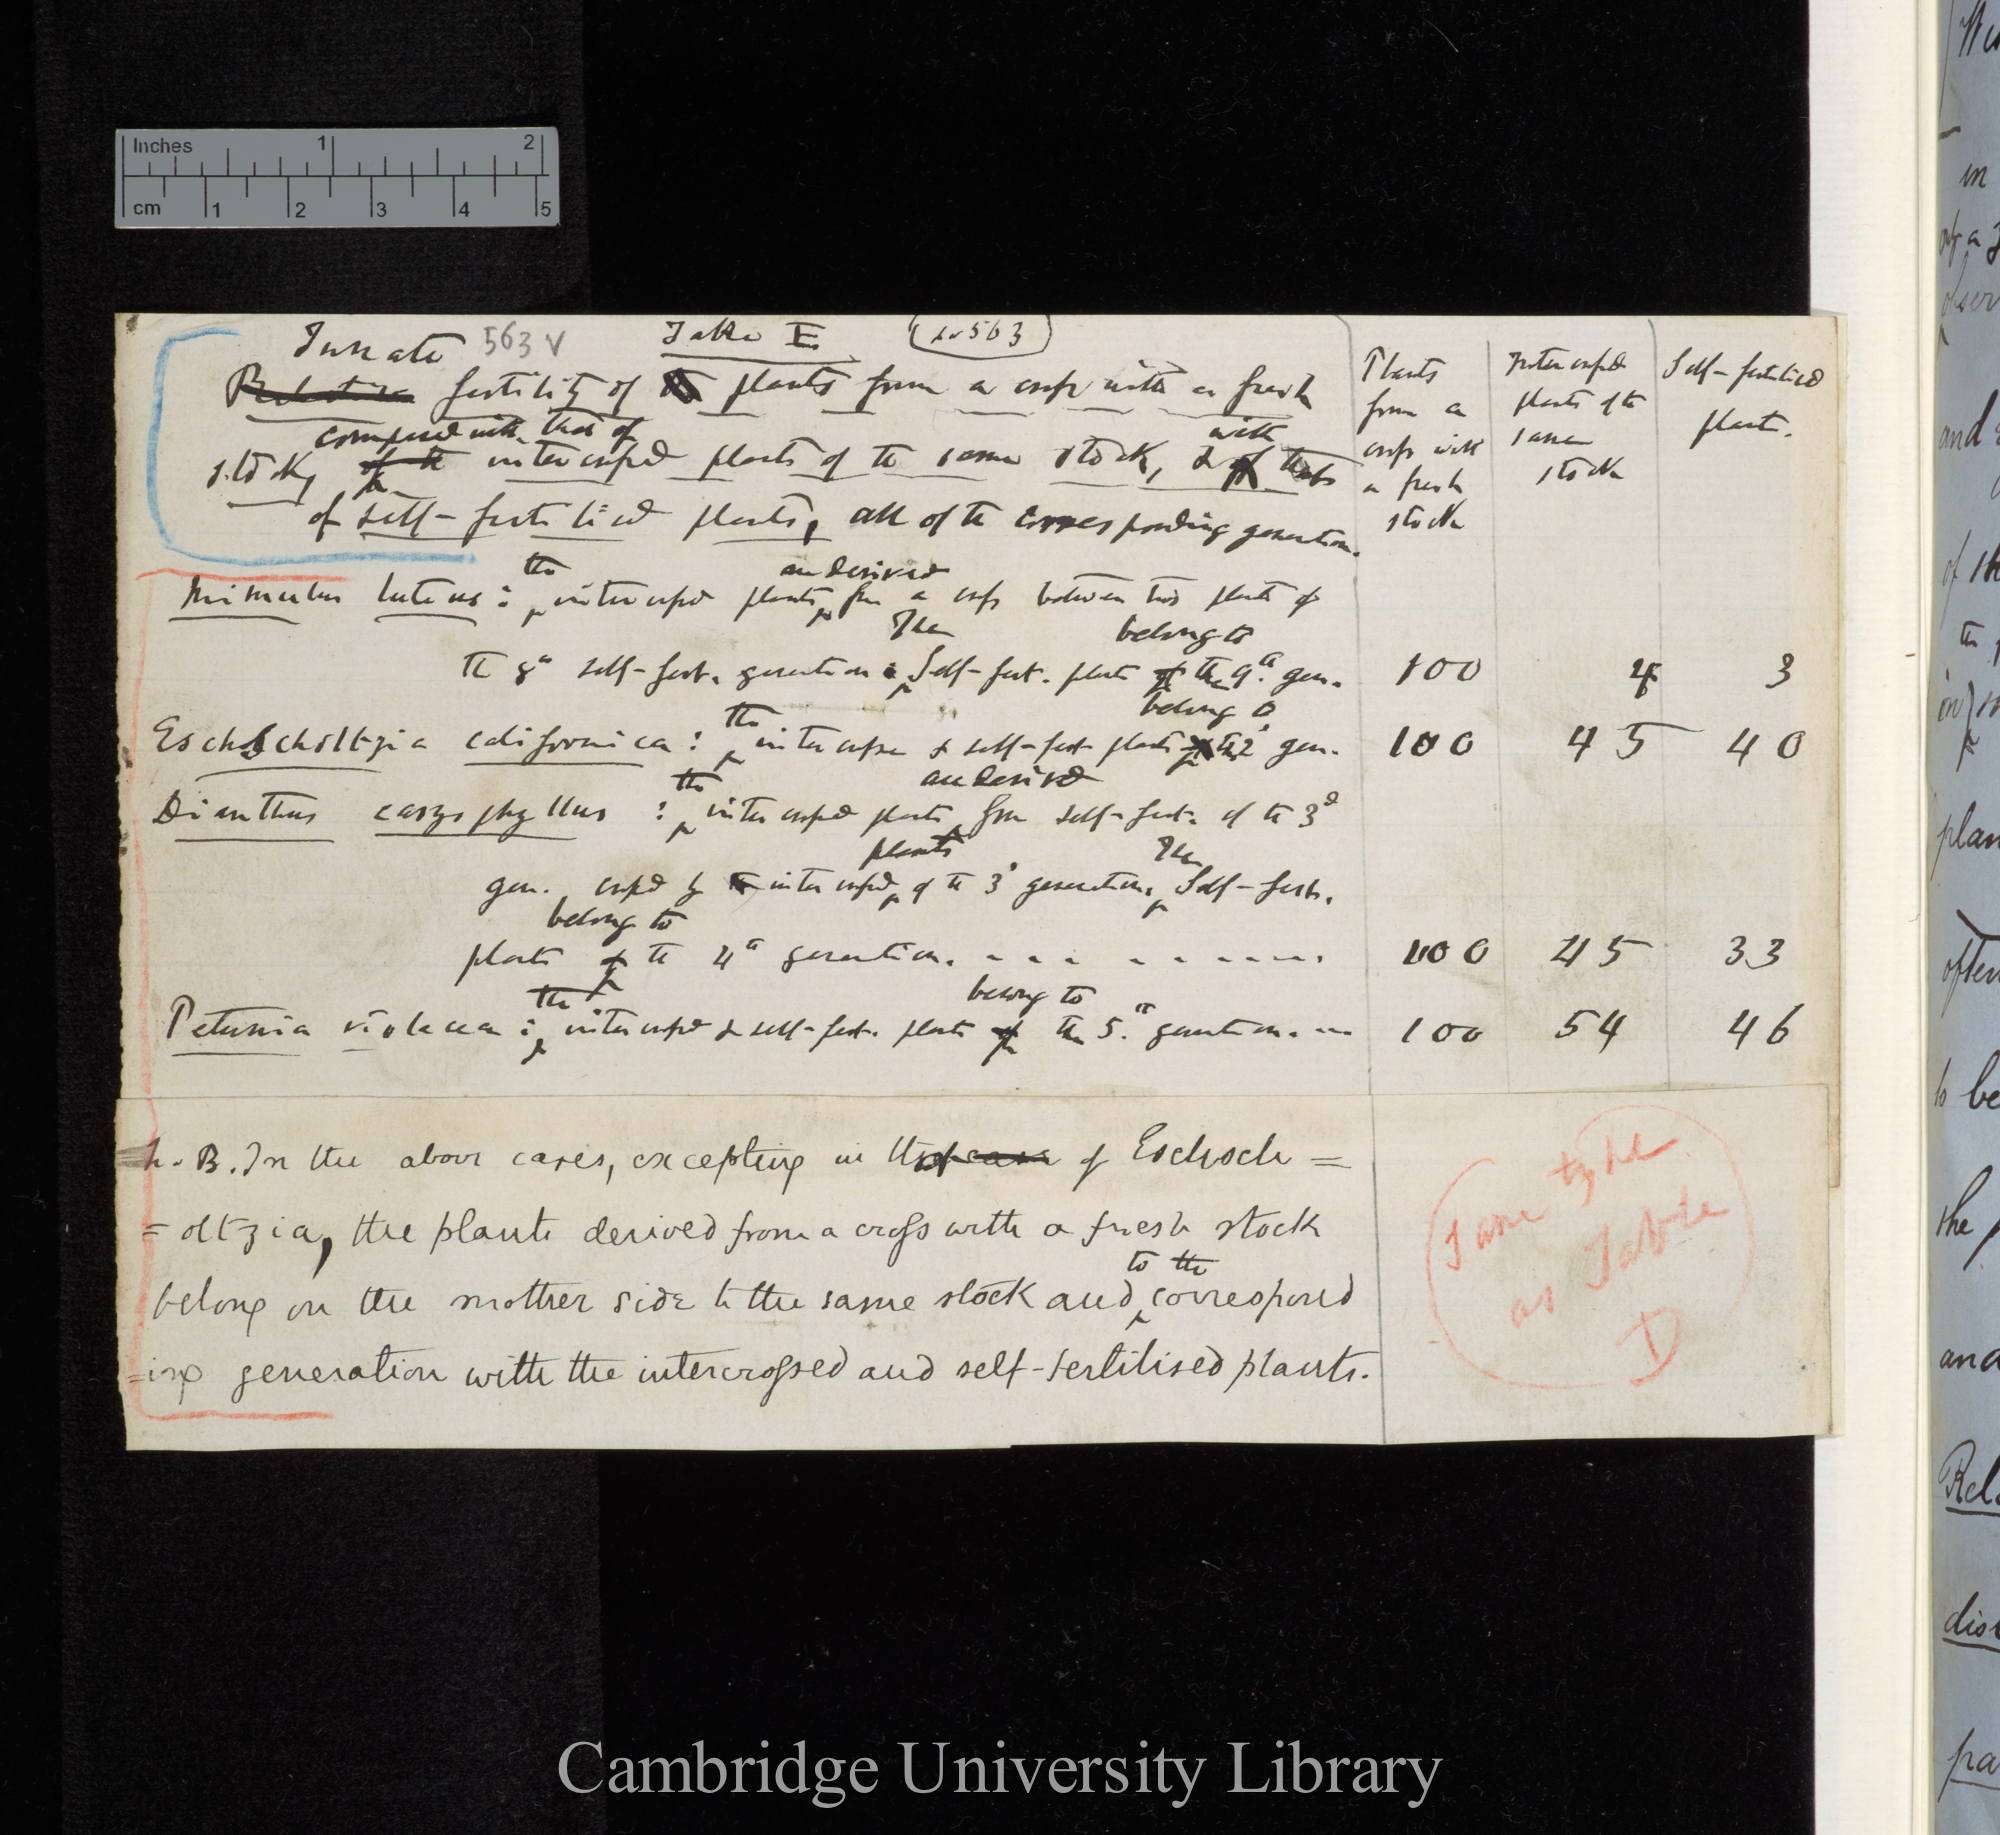 Inches 1 2
cm 1 2 3 4 5
Innate 563 v Table E (to 563)
Relative fertility of the plants from a cross with a fresh
compared with that of with
stock, of the intercrossed plants of the same stock, & of that
of self-fertilised plants, all of the corresponding generation.
Plants from a cross with a fresh stock
Intercrossed plants of the same stock
Self-fertilised plants.
the are derived
Mimulus luteus: intercrossed plants from a cross between two plants of
The belong to
the 8th self-fert. generation: Self-fert. plants of the 9th gen. 100 4 3
the belong to
Eschscholtzia californica: intercrossed & self-fert. plants of the 2d gen. 100 45 40
the are derived
Dianthus caryophyllus: intercrossed plants from self-fert. of the 3d
plants The
gen. crossed by the intercrossed of the 3d generation. Self-fert.
belong to
plants of the 4th generation. 100 45 33
the belong to
Petunia violacea: intercrossed & self-fert. plants of the 5th generation. 100 54 46
N.B. In the above cases, excepting in that case of Eschsch=
=oltzia, the plants derived from a cross with a fresh stock
to the
belong on the mother side to the same stock and correspond
=ing generation with the intercrossed and self-fertilised plants.
Same type
as Table
D
Cambridge University Library
in
and
of th
plan
often
to be
the
and
Rel
dis
pa